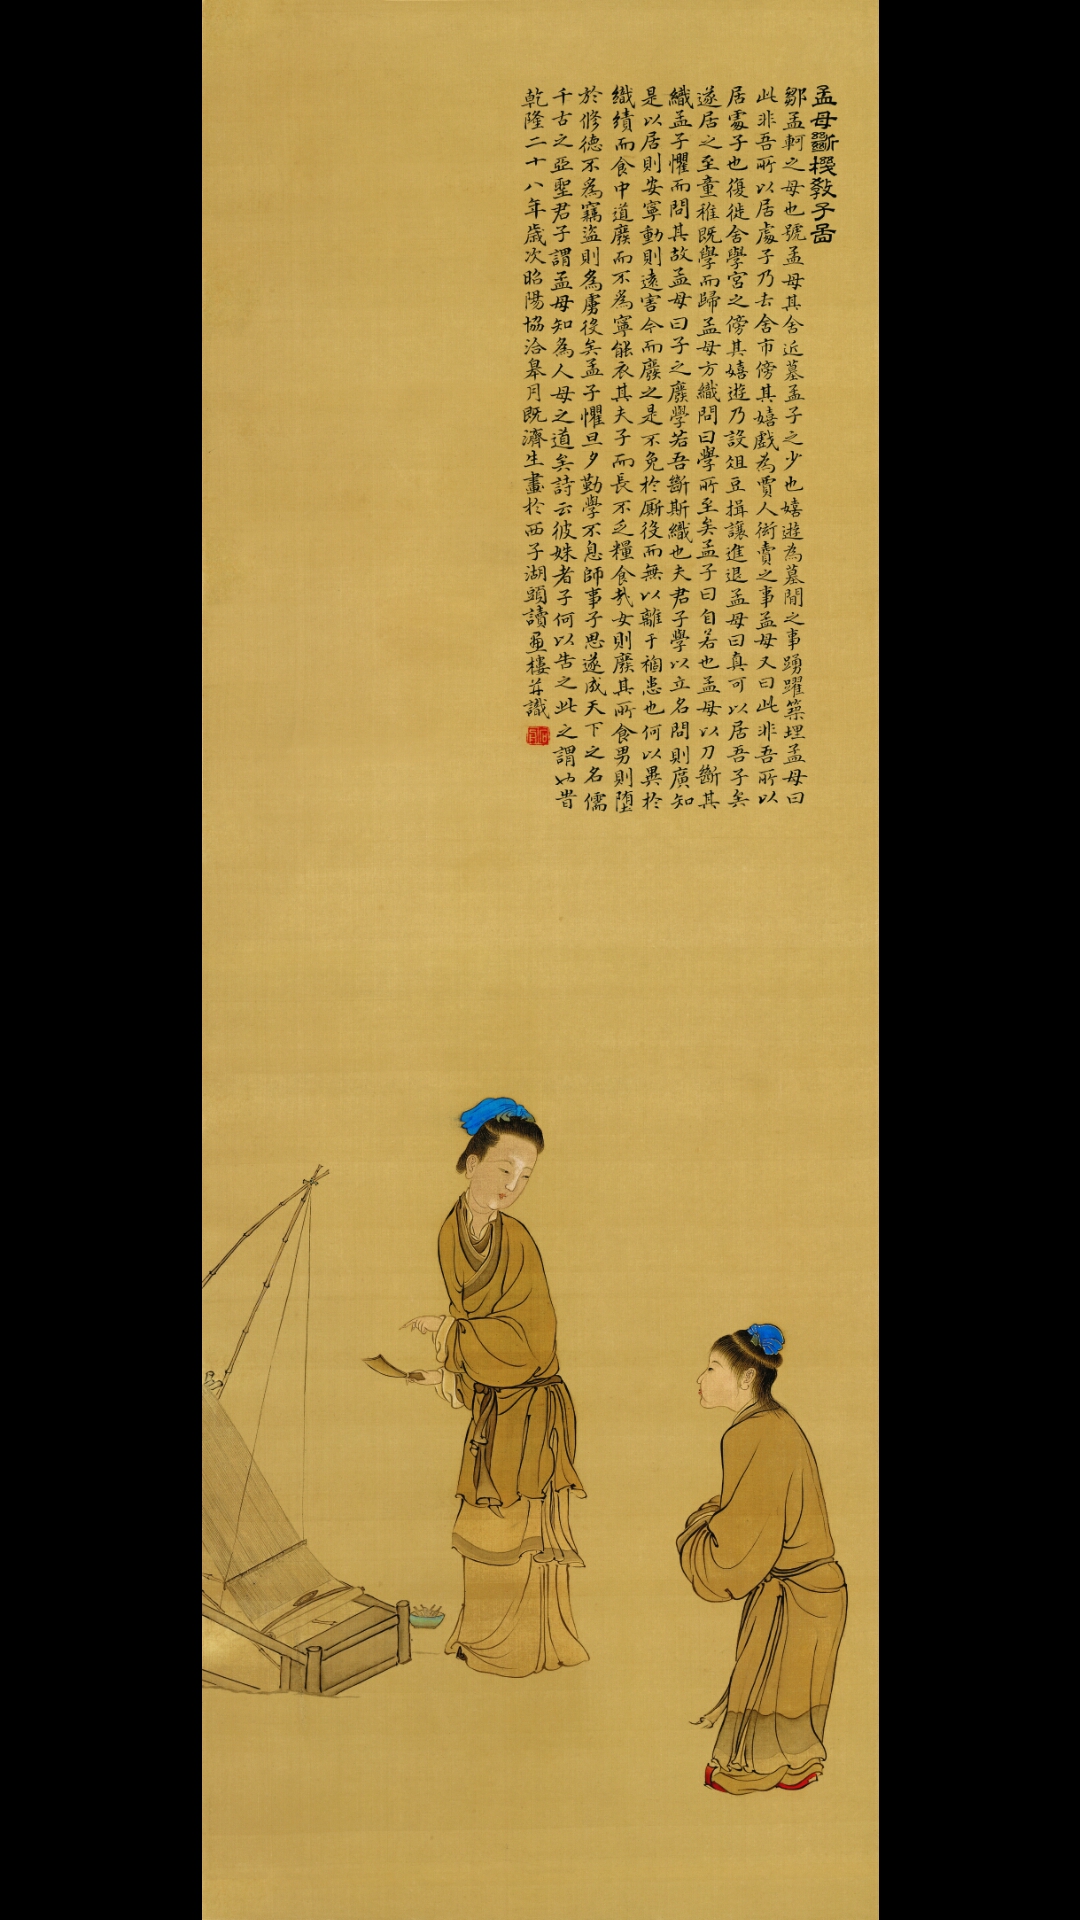 孟母斷機教子圖
鄒孟軻之母也號孟母其舍近墓孟子之少也嬉遊為墓間之事踴躍築埋孟母曰
此非吾所以居處子乃去舍市傍其嬉戲為賈人衒賣之事孟母又曰此非吾所以
居處子也復徙舍學宮之傍其嬉遊乃設俎豆揖讓進退孟母曰真可以居吾子矣
遂居之至童稚既學而歸孟母方織問曰學所至矣孟子曰自若也孟母以刀斷其
織孟子懼而問其故孟母曰子之廢學若吾斷斯織也夫君子學以立名問則廣知
是以居則安寧動則遠害今而廢之是不免於厮役而無以離于禍患也何以異於
織績而食中道廢而不為寧能衣其夫子而長不乏糧食哉女則廢其所食男則堕
於修德不為竊盜則為虜役矣孟子懼旦夕勤學不息師事子思遂成天下之名儒
千古之亞聖君子謂孟母知為人母之道矣詩云彼姝者子何以告之此之謂也旹
乾隆二十八年歲次昭陽協洽皋月既濟生畫於西子湖頭讀畫樓并識